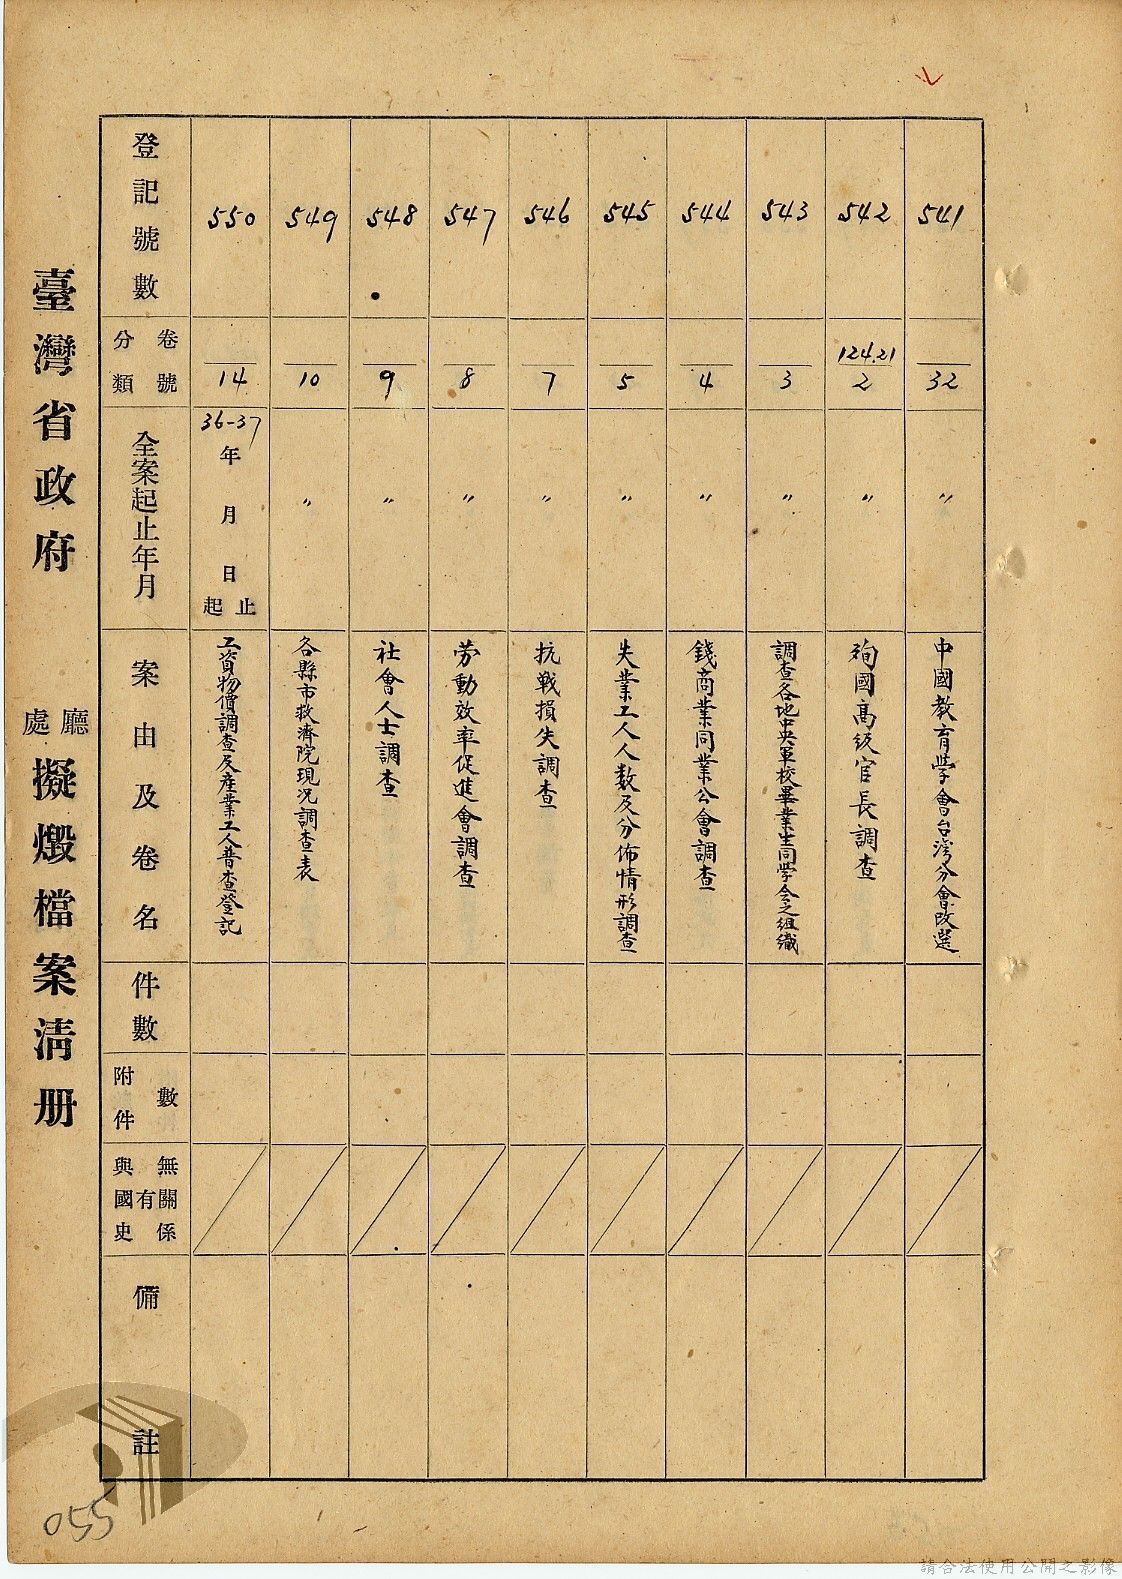 臺灣省政府 廳處 擬燬檔案清册
登記號數
550
549
548
547
546
545
544
543
542
541
分類 卷號
14
10
9
8
7
5
4
3
124.21
2
32
全案起止年月
36-37
年
月
日
起 止
〃
〃
〃
〃
〃
〃
〃
〃
〃
案由及卷名
工資物價調查及產業工人普查登記
各縣市救濟院現況調查表
社會人士調查
勞動效率促進會調查
抗戰損失調查
失業工人人數及分佈情形調查
錢商業同業公會調查
調查各地中央軍校畢業生同學會之組織
殉國高級官長調查
中國教育學會台灣分會改選
件數
附件 數
與國史 有 無關係
備
註
055
請合法使用公開之影像